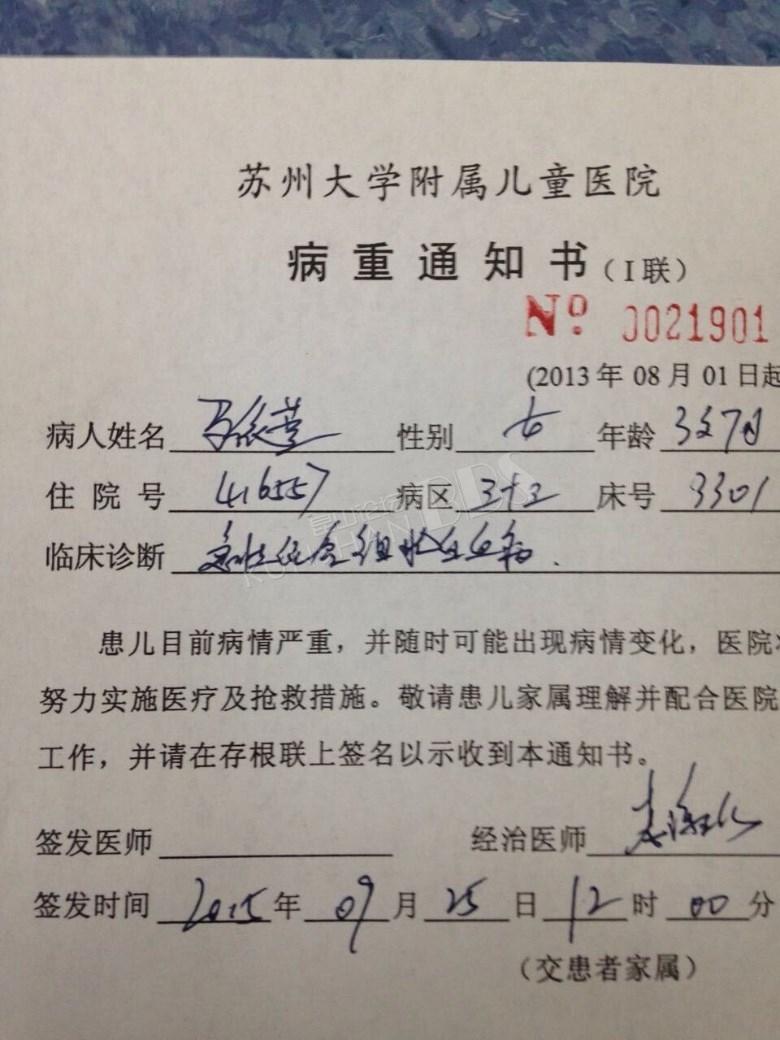 苏州大学附属儿童医院
病重通知书（I联）
Nº 0021901
(2013年08月01日起
病人姓名 性别 女 年龄 3岁7月
住院号 416557 病区 3+3 床号 3301
临床诊断 急性混合细胞白血病.
患儿目前病情严重，并随时可能出现病情变化，医院将
努力实施医疗及抢救措施。敬请患儿家属理解并配合医院
工作，并请在存根联上签名以示收到本通知书。
签发医师 经治医师
签发时间 2015年09月25日12时00分
（交患者家属）